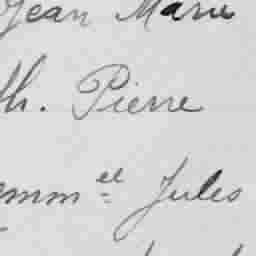 Jean Marie
th. Pierre
emm el Jules